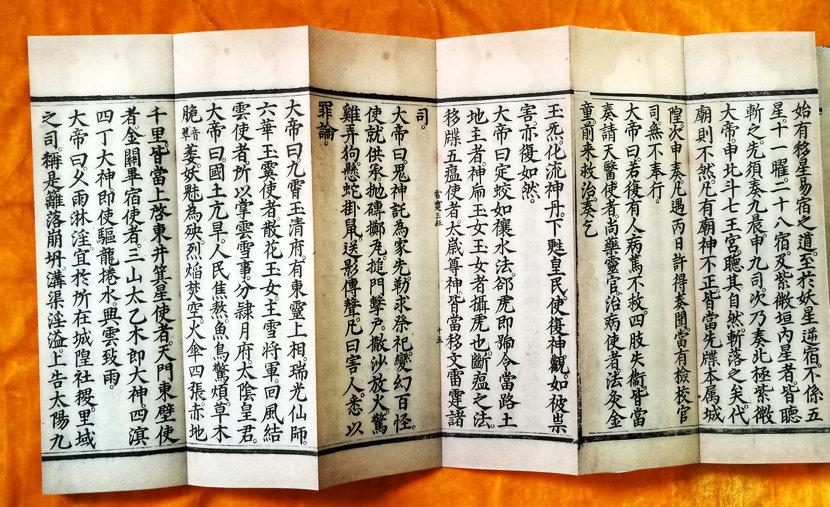 始有移星易宿之道。至於妖星逆宿。不係五
星。十一曜。二十八宿。及紫微垣内星者。皆聽
斬之。先須奏九晨。申九司。次乃奏北極紫微
大帝。申北斗七王宮。聽其自然。斬落之矣。代
廟則不然。凡有廟神不正。皆當先牒本属城
隍。次申奏。凡遇丙日許得奏聞。當有檢校官
司。無不奉行。
大帝曰。若復有人。病篤不救。四肢失衛。皆當
奏請天醫使者。尚藥靈官。治病使者。法灸金
童。前来救治。奏乞
王炁。化流神丹。下甦皇民。使復神觀。如彼祟
害。亦復如然。
大帝曰。定蛟如穰水法。郤虎即號令當路土
地主者。神扁玉女。玉女者攝虎也。斷瘟之法。
移牒五瘟使者。太歲尊神。皆當移文雷霆諸
司。
大帝曰。鬼神託為家先。勒求祭祀。變幻百怪。
使就供承。抛磚擲瓦。搥門擊户。撒沙放火。驚
雞弄狗。懸蛇掛鼠。送影傳聲。凡曰害人。悉以
罪論。
大帝曰。九霄玉清府。有東靈上相。瑞光仙師。
六華玉寳使者。散花玉女。玉雪將軍。回風結
雲使者。所以掌雲雪事。分隷月府太陰皇君。
大帝曰。國土亢旱。人民焦熬。魚鳥驚煩。草木
脆音翠萎。妖魅為殃。烈焰焚空。火傘四張。赤地
千里。皆當上啓東井箕星使者。天門東壁使
者。金關畢宿使者。三山太乙木郎大神。四溟
四丁大神。即使驅龍捲水。興雲致雨。
大帝曰。久雨淋淫。宜於所在城隍社稷。里域
之司。稱是離落崩坍。溝渠淫溢。上告太陽九